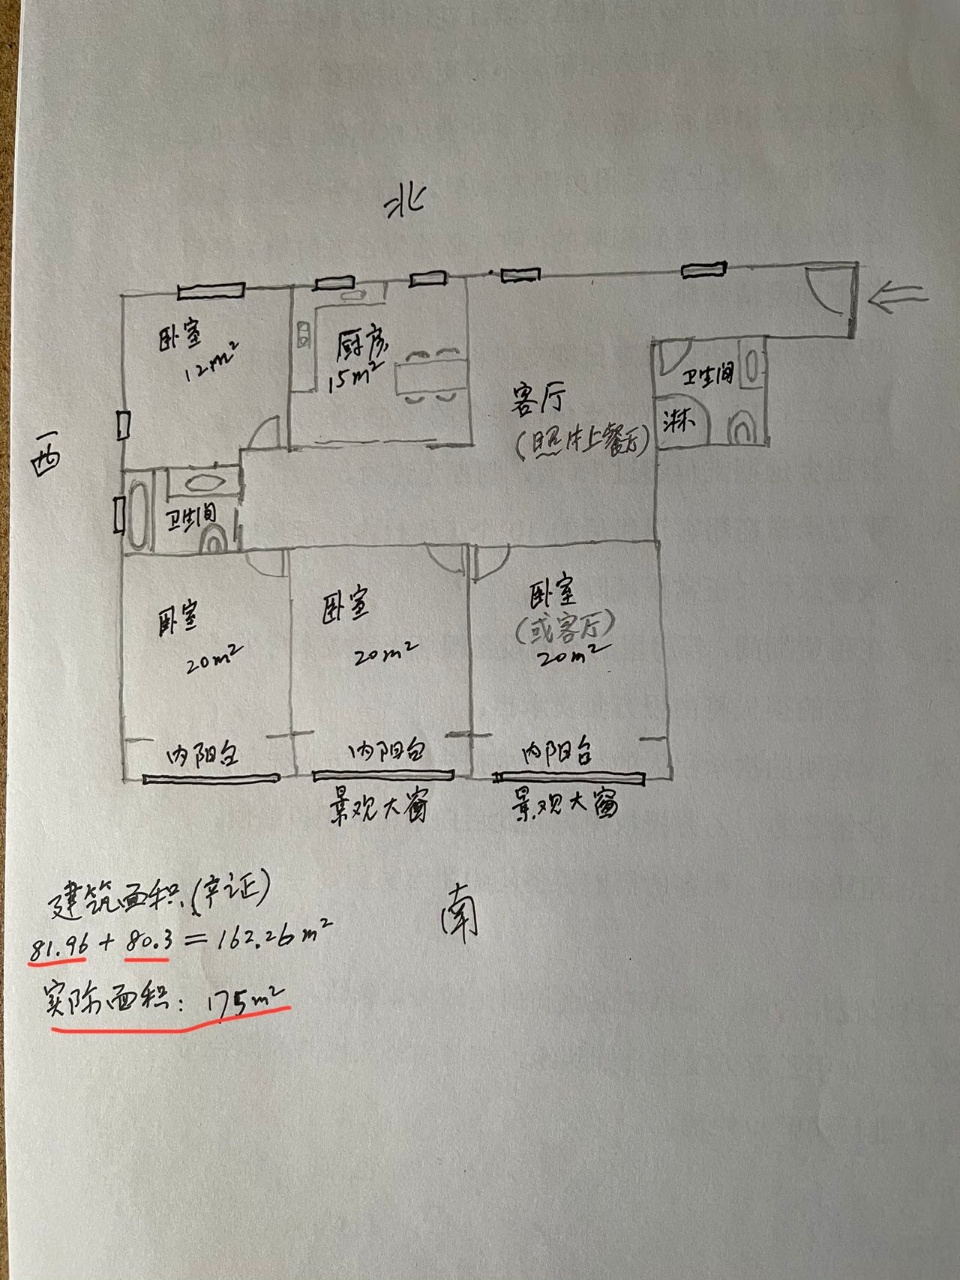 北
卧室
12m²
厨房
15m²
客厅
(照片上餐厅)
卫生间
淋
西
卫生间
卧室
20m²
卧室
20m²
卧室
(或客厅)
20m²
内阳台
内阳台
内阳台
景观大窗
景观大窗
南
建筑面积(产证)
81.96 + 80.3 = 162.26m²
实际面积: 175m²